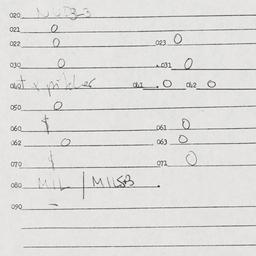 020
021 0
022 0 023 0
030 0 031 0
040 041 0 042 0
050 0
060 061 0
062 0 063 0
070 072 0
080 MIL / MILSB
090 –